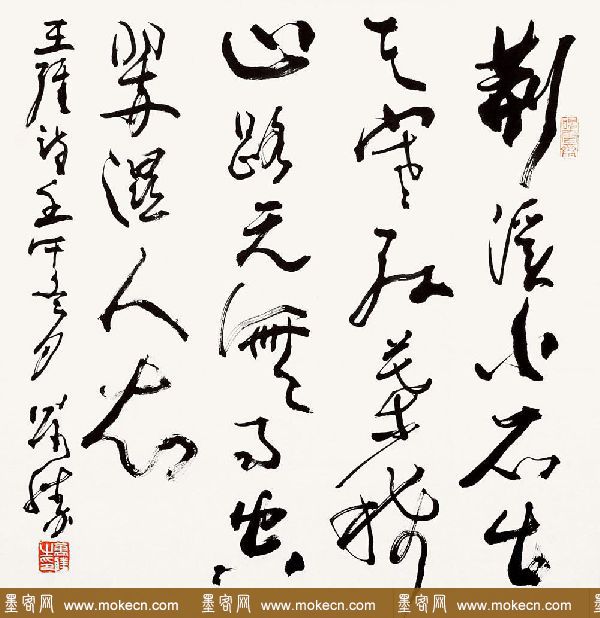 荆溪白石出
天寒红叶稀
山路元無雨空
翠濕人衣
王維詩壬午冬月
墨客网 www.mokecn.com 墨客网 www.mokecn.com 墨客网 www.mokecn.com